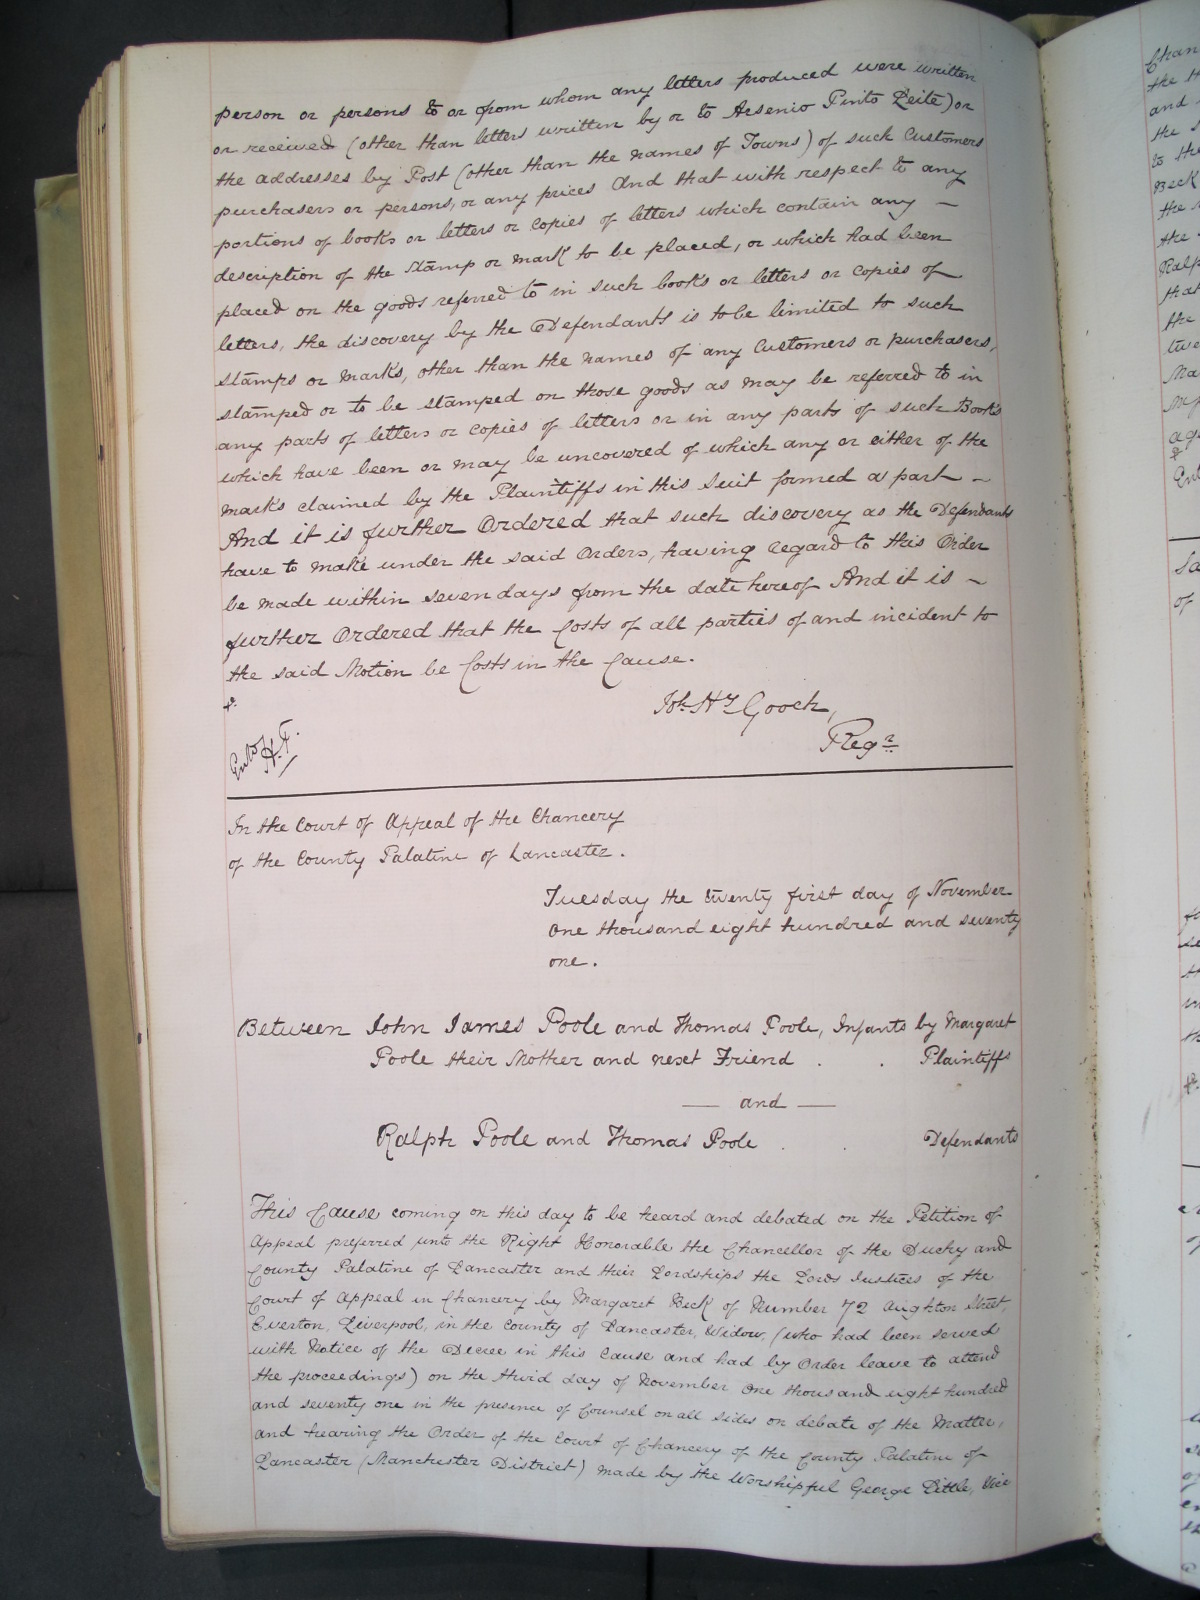 person or persons to or from whom any letters produced were written
or received (other than letters written by or to Arsenio Pinto Leite) or
the addresses by Post (other than the names of Towns) of such Customers
purchasers or persons, or any prices And that with respect to any
portions of books or letters or copies of letters which contain any –
description of the stamp or mark to be placed, or which had been
placed on the goods referred to in such books or letters or copies of
letters, the discovery by the Defendants is to be limited to such
stamps or marks, other than the names of any Customers or purchasers,
stamped or to be stamped on those goods as may be referred to in
any parts of letters or copies of letters or in any parts of such Books
which have been or may be uncovered of which any or either of the
marks claimed by the Plaintiffs in this Suit formed a part –
And it is further Ordered that such discovery as the Defendants
have to make under the said Orders, having regard to this Order
be made within seven days from the date hereof And it is –
further Ordered that the Costs of all parties of and incident to
the said Motion be Costs in the Cause.
Joh Hy Gooch,
Regr
Entd H.F.
In the Court of Appeal of the Chancery
of the County Palatine of Lancaster.
Tuesday the twenty first day of November
One thousand eight hundred and seventy
one.
Between John James Poole and Thomas Poole, Infants by Margaret
Poole their Mother and next Friend . . Plaintiffs
— and —
Ralph Poole and Thomas Poole . . Defendants
This Cause coming on this day to be heard and debated on the Petition of
Appeal preferred unto the Right Honorable the Chancellor of the Duchy and
County Palatine of Lancaster and their Lordships the Lords Justices of the
Court of Appeal in Chancery by Margaret Beck of Number 72 Aughton Street,
Everton, Liverpool, in the County of Lancaster, Widow, (who had been served
with Notice of the Decree in this Cause and had by Order leave to attend
the proceedings) on the third day of November One thousand eight hundred
and seventy one in the presence of Counsel on all sides on debate of the Matter,
and hearing the Order of the Court of Chancery of the County Palatine of
Lancaster (Manchester District) made by the Worshipful George Little, Vice